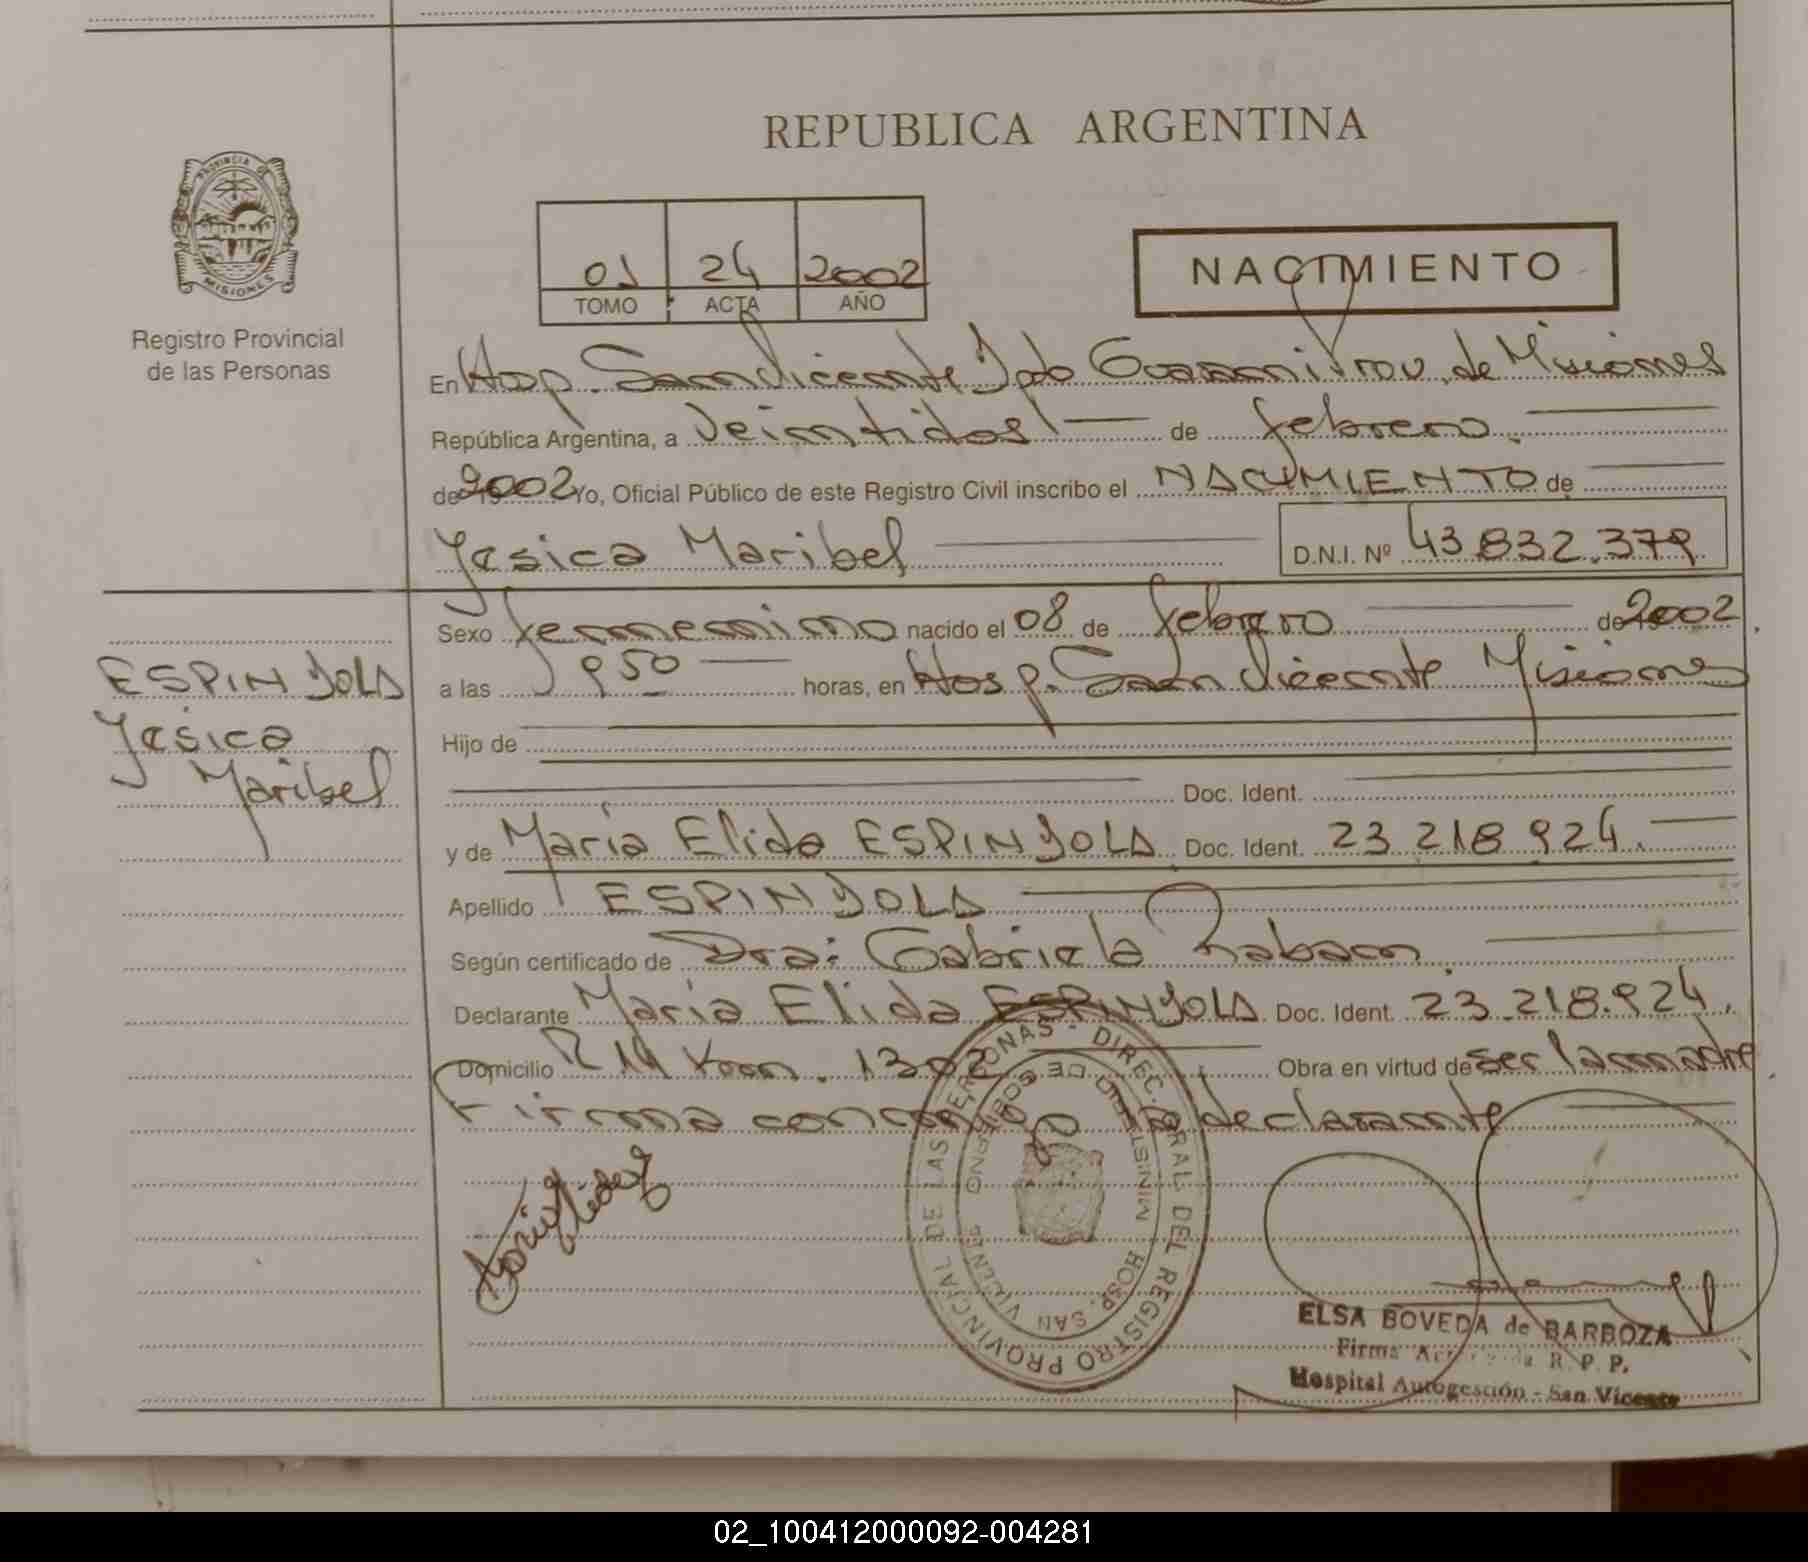 REPUBLICA ARGENTINA
PROVINCIA DE
MISIONES
Registro Provincial
de las Personas
01 24 2002
TOMO ACTA AÑO
NACIMIENTO
En Hosp. San Vicente Dpto Guarani Prov. de Misiones
República Argentina, a Veintidos de febrero.
de 2002 Yo, Oficial Público de este Registro Civil inscribo el NACIMIENTO de
Yesica Maribel D.N.I. Nº 43.832.379
Sexo femenino nacido el 08 de febrero de 2002.
a las 950 horas, en Hosp. San Vicente Misiones
Hijo de
Doc. Ident.
y de María Elida ESPINDOLA Doc. Ident. 23 218 924.
Apellido ESPINDOLA
Según certificado de Dra: Gabriela
Declarante María Elida ESPINDOLA Doc. Ident. 23.218.924.
Domicilio R 14 Km. 1302 Obra en virtud de ser la madre
Firma conmigo la declarante
ESPINDOLA
Yesica
Maribel
REGISTRO PROVINCIAL DE LAS PERSONAS - DIREC. GRAL. DEL
MINISTERIO DE GOBIERNO
HOSP. SAN VICENTE
ELSA BOVEDA de BARBOZA
Firma R. P. P.
Hospital Autogestión - San Vicente
02_100412000092-004281